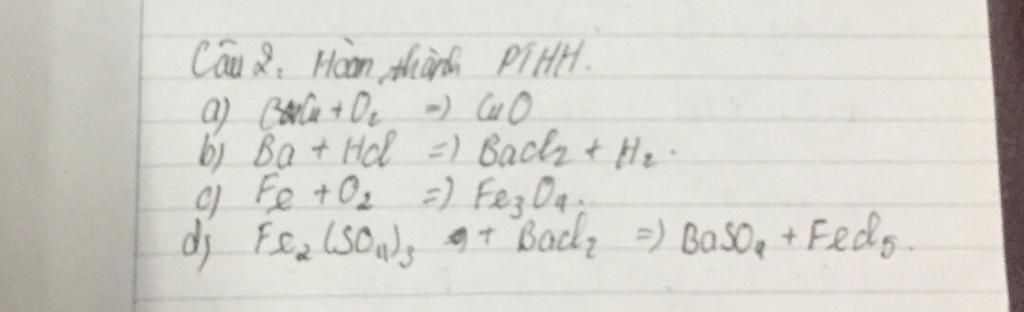 Câu 2: Hoàn thành PTHH.
a) Cu + O₂ => CuO
b) Ba + Hcl => Bacl₂ + H₂.
c) Fe + O₂ => Fe₃O₄.
d) Fe₂(SO₄)₃ + Bacl₂ => BaSO₄ + Fecl₃.